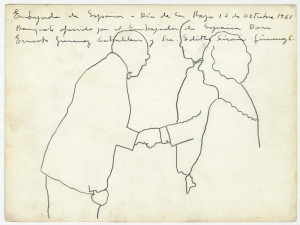 Embajada de España - Día de la Raza 12 de Octubre 1961
Banquete ofrecido por el Embajador de España Don
Ernesto Gimenez Caballero y Sra Edith Gimenez